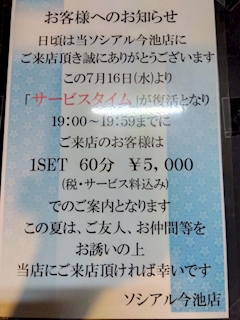 お客様へのお知らせ
日頃は当ソシアル今池店に
ご来店頂き誠にありがとうございます
この7月16日(水)より
「サービスタイム」が復活となり
19:00~19:59までに
ご来店のお客様は
1SET 60分 ¥5,000
(税・サービス料込み)
でのご案内となります
この夏は、ご友人、お仲間等を
お誘いの上
当店にご来店頂ければ幸いです
ソシアル今池店